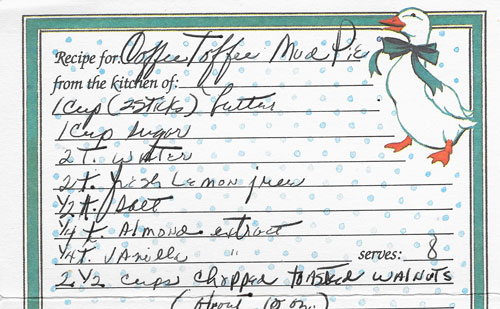 Recipe for: Coffee Toffee Mud Pie
from the kitchen of:
1 Cup (2 sticks) butter
1 Cup sugar
2 T. water
2 t. fresh Lemon juice
1/2 t. salt
1/4 t. Almond extract
1/4 t. Vanilla "
serves: 8
2 1/2 cups chopped toasted walnuts
(About 10 oz.)